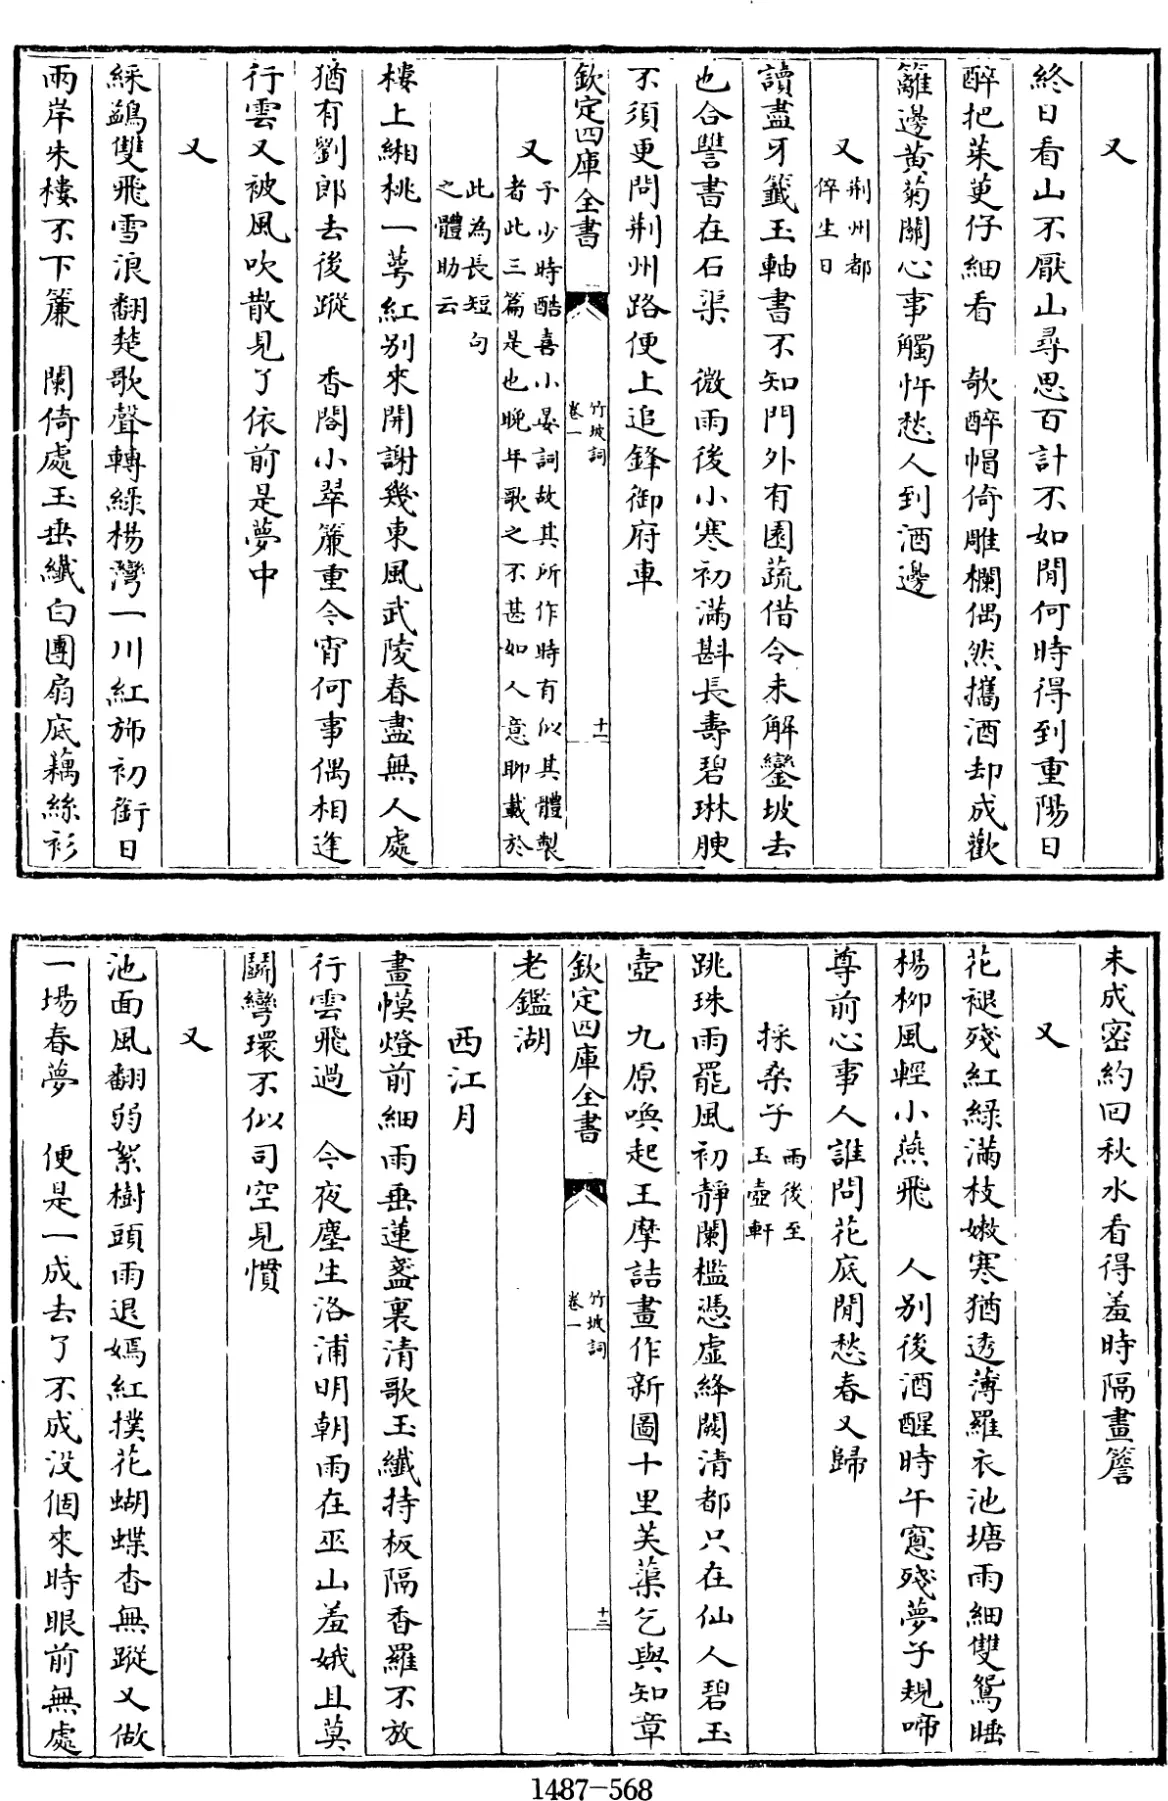 又
終日看山不厭山尋思百計不如閒何時得到重陽日
醉把茱萸仔細看　欹醉帽倚雕欄偶然攜酒却成歡
籬邊黃菊關心事觸忤愁人到酒邊
又荆州都倅生日
讀盡牙籤玉軸書不知門外有園蔬借令未解鑾坡去
也合讐書在石渠　微雨後小寒初滿斟長壽碧琳腴
不須更問荆州路便上追鋒御府車
欽定四庫全書
竹坡詞
卷一
十一
又予少時酷喜小晏詞故其所作時有似其體製
者此三篇是也晚年歌之不甚如人意聊載於
此為長短句
之體助云
樓上緗桃一萼紅别來開謝幾東風武陵春盡無人處
猶有劉郎去後蹤　香閣小翠簾重今宵何事偶相逢
行雲又被風吹散見了依前是夢中
又
綵鷁雙飛雪浪翻楚歌聲轉綠楊灣一川紅斾初銜日
兩岸朱樓不下簾　闌倚處玉垂纖白團扇底藕絲衫
未成密約回秋水看得羞時隔畫簷
又
花褪殘紅綠滿枝嫩寒猶透薄羅衣池塘雨細雙鴛睡
楊柳風輕小燕飛　人别後酒醒時午窻殘夢子規啼
尊前心事人誰問花底閒愁春又歸
採桑子雨後至玉壺軒
跳珠雨罷風初靜闌檻憑虛絳闕清都只在仙人碧玉
壺　九原喚起王摩詰畫作新圖十里芙蕖乞與知章
欽定四庫全書
竹坡詞
卷一
十二
老鑑湖
西江月
畫幙燈前細雨垂蓮盞裏清歌玉纖持板隔香羅不放
行雲飛過　今夜塵生洛浦明朝雨在巫山羞娥且莫
鬭彎環不似司空見慣
又
池面風翻弱絮樹頭雨退嫣紅撲花蝴蝶杳無蹤又做
一場春夢　便是一成去了不成没個來時眼前無處
1487-568